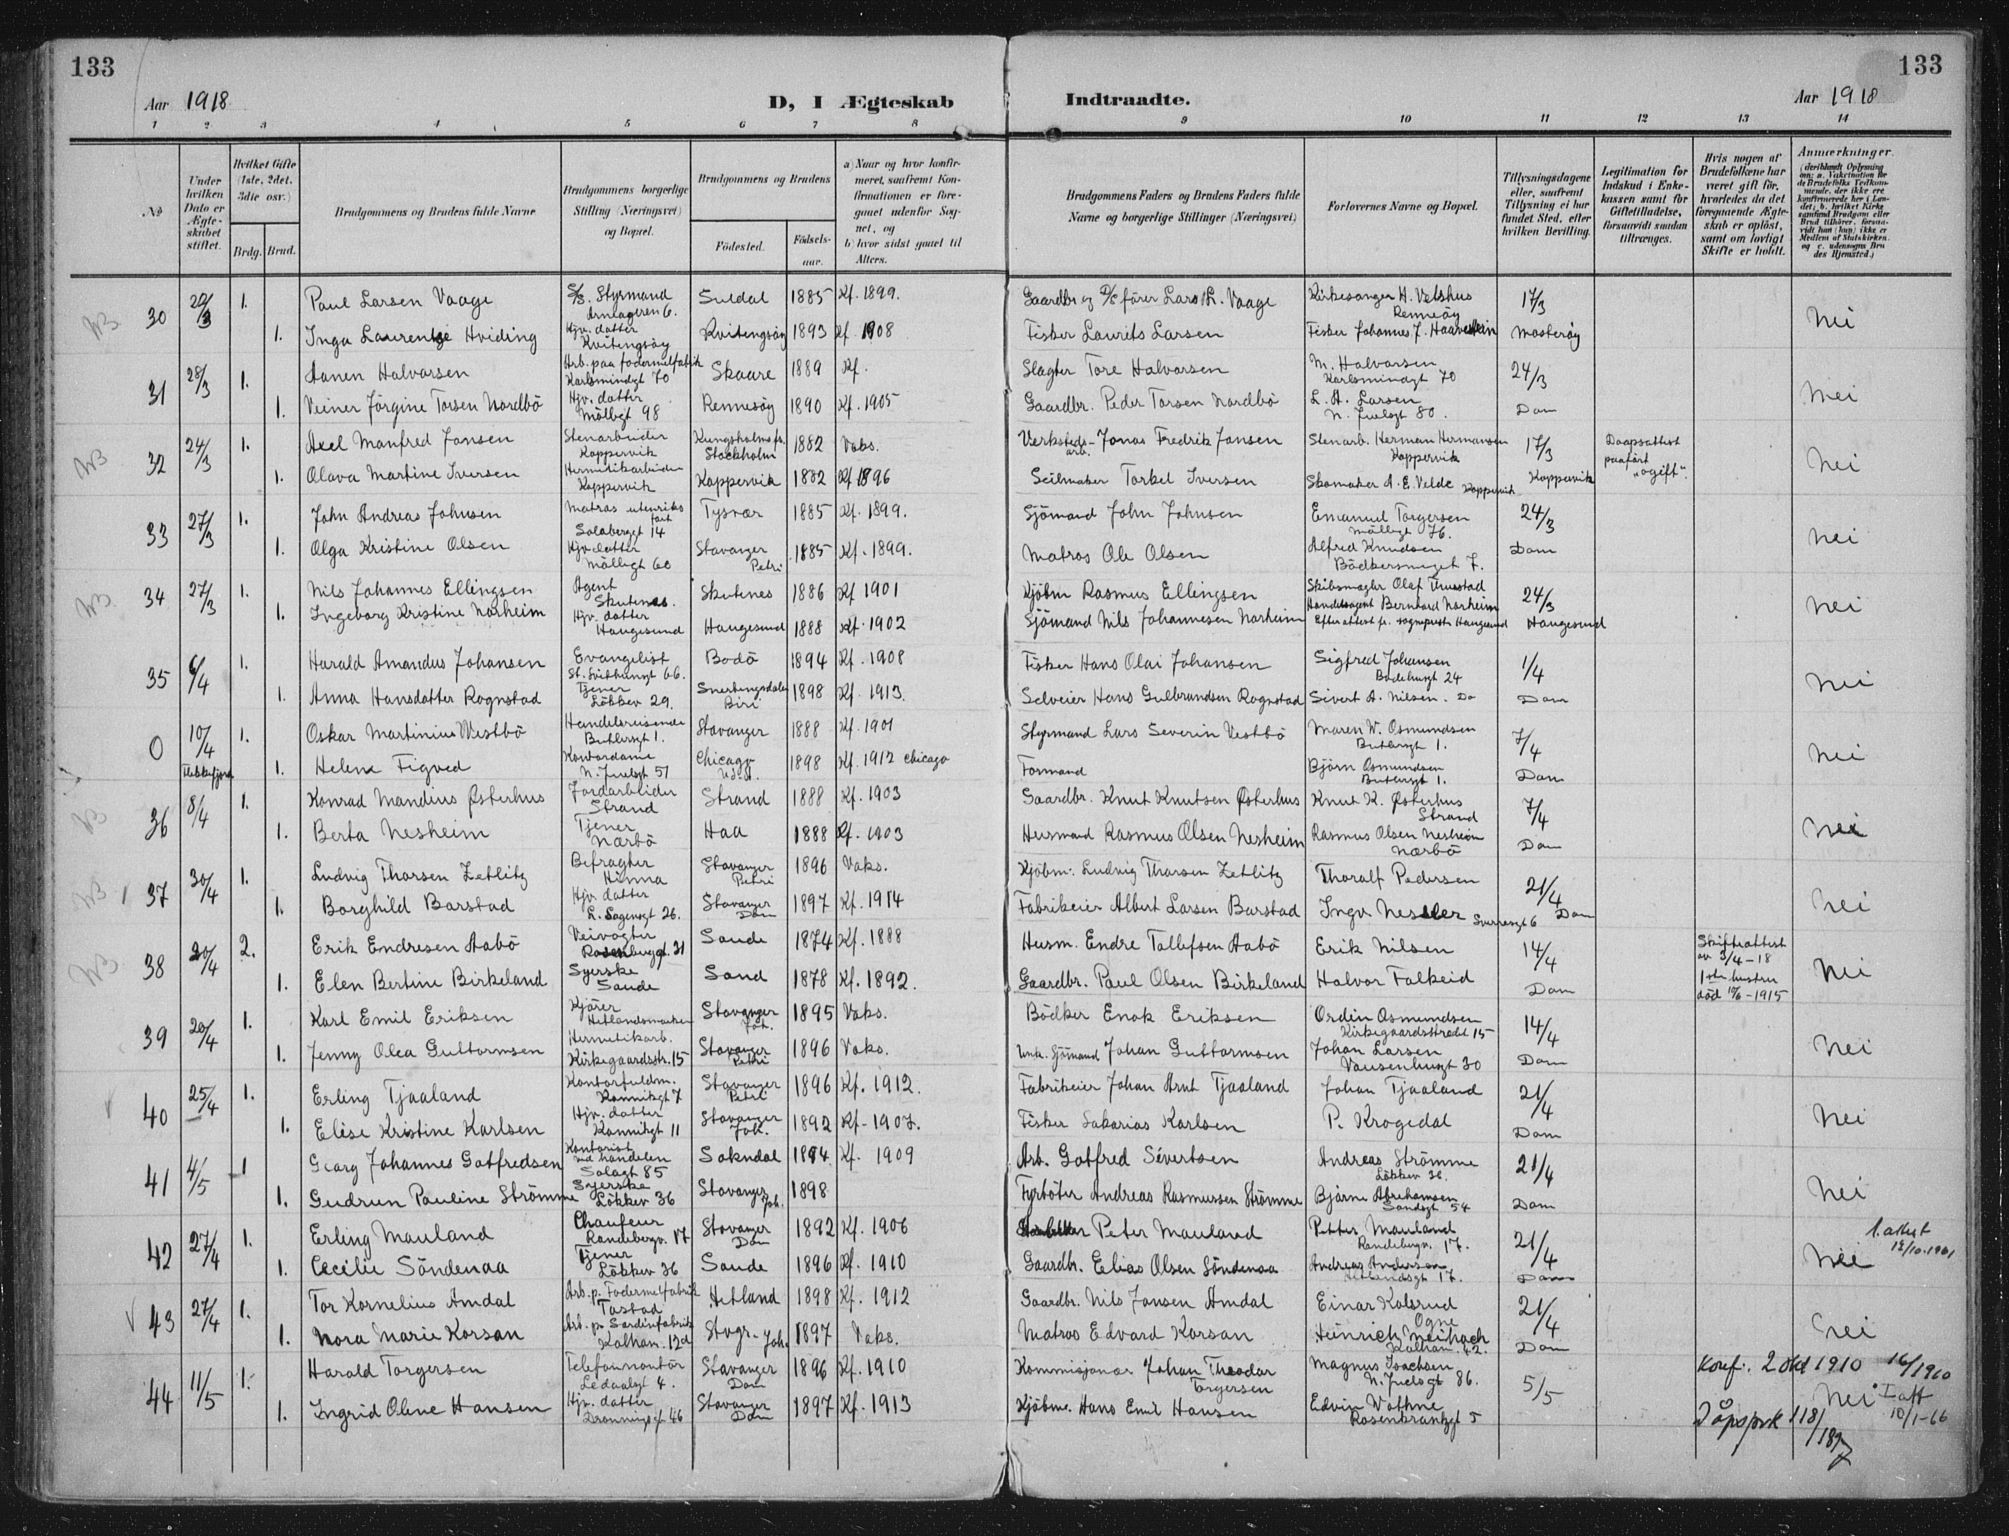 133
133
Aar 1918
D, I Ægteskab
Indtraadte.
Aar 1918
1 2 3 4 5 6 7 8 9 10 11 12 13 14
No
Under hvilken Dato er Ægteskabet stiftet.
Hvilket Gifte (1ste, 2det, 3die osv.)
Brdg. Brud.
Brudgommens og Brudens fulde Navne
Brudgommens borgerlige Stilling (Næringsvei) og Bopæl.
Brudgommens og Brudens
Fødested.
Fødselsaar.
a) Naar og hvor konfirmeret, saafremt Konfirmationen er foregaaet udenfor Sognet, og
b) hvor sidst gaaet til Alters.
Brudgommens Faders og Brudens Faders fulde Navne og borgerlige Stillinger (Næringsvei)
Forlovernes Navne og Bopæl.
Tillysningsdagene eller, saafremt Tillysning ei har fundet Sted, efter hvilken Bevilling.
Legitimation for Indskud i Enkekassen samt for Giftetilladelse, forsaavidt saadan tiltrænges.
Hvis nogen af Brudefolkene har været gift før, hvorledes da det foregaaende Ægteskab er opløst, samt om lovligt Skifte er holdt.
Anmærkninger.
30 20/3 1. Paul Larsen Vaage S/S. Styrmand Suldal 1885 Kf. 1899. Gaardbr og D/S fører Lars L. Vaage Kirkesanger H. Vetshus Rennesøy 17/3 Nei
1. Inga Laurentse Hviding Hjv. datter Kvitingsøy Kvitingsøy 1893 Kf. 1908 Fisker Laurits Larsen Fisker Johannes J. Haavestein Mosterøy
31 28/3 1. Aanen Halvorsen Arb. paa fodermelfabrik Karlsmindgt 70 Skaare 1889 Kf. Slagter Tore Halvorsen M. Halvorsen Karlsmindgt 70 24/3 Nei
1. Veiner Jörgine Torsen Nordbö Hjv. datter Mölbgt 98 Rennesöy 1890 Kf. 1905 Gaardbr. Peder Torsen Nordbö L. A. Larsen N. Juelsgt 80. Dom
32 24/3 1. Axel Manfred Jansen Stenarbeider Koppervik Kungsholms fs. Stockholm 1882 Vaks. Verkstedsarb. Jonas Fredrik Jansen Stenarb. Herman Hermansen Koppervik 17/3 Daapsattest paaført "ogift". Nei
1. Olava Martine Iversen Hermetikarbeider Koppervik Koppervik 1882 Kf 1896 Seilmaker Torkel Iversen Skomaker A. E. Velde Koppervik Koppervik
33 27/3 1. John Andreas Johnsen Matros utenriks fart Solaberget 14 Tysvær 1885 Kf. 1899. Sjömand John Johnsen Emanuel Torgersen Möllegt 76. 24/3 Nei
1. Olga Kristine Olsen Hjv. datter Möllegt 60 Stavanger Petri 1885 Kf. 1899. Matros Ole Olsen Alfred Knudsen Bödkersmuget 7. Dom
34 27/3 1. Nils Johannes Ellingsen Agent Skutenes. Skutenes 1886 Kf 1901 Kjöbm Rasmus Ellingsen Skibsmægler Olaf Thuestad 24/3 Nei
1. Ingeborg Kristine Norheim Hjv. datter Haugesund Haugesund 1888 Kf. 1902 Sjömand Nils Johannesen Norheim Handelsagent Bernhard Norheim Efter attest fr. sogneprest Haugesund Haugesund
35 6/4 1. Harald Amandus Johansen Evangelist St. Svithunsgt 66. Bodö 1894 Kf. 1908 Fisker Hans Olai Johansen Sigfred Johansen Badehusgt 24 1/4 Nei
1. Anna Hansdatter Rognstad Tjener Lökkev 29. Snertingsdalen Biri 1898 Kf. 1913. Selveier Hans Gulbrandsen Rognstad Sivert A. Nilsen. Do Dom
0 10/4 Flekkefjord 1. Oskar Martinius Westbö Handelsreisende Butlersgt 1. Stavanger 1888 Kf. 1901 Styrmand Lars Severin Vestbö Maren W. Osmundsen Butlersgt 1. 7/4 Nei
1. Helene Figved Kontordame N. Juelsgt 51 Chicago U.S.A. 1898 Kf. 1912 Chicago Formand Björn Osmundsen Butlersgt 1. Dom
36 8/4 1. Konrad Mandius Østerhus Jordarbeider Strand Strand 1888 Kf. 1903 Gaardbr. Knut Knutsen Østerhus Knut K. Østerhus Strand 7/4 Nei
1. Berta Nesheim Tjener Nærbö Haa 1888 Kf. 1903 Husmand Rasmus Olsen Nesheim Rasmus Olsen Nesheim Nærbö Dom
37 30/4 1. Ludvig Thorsen Zetlitz Befragter Hinna Stavanger Petri 1896 Vaks. Kjöbm: Ludvig Thorsen Zetlitz Thoralf Pedersen 21/4 Nei
1. Borghild Barstad Hjv. datter L. Sagensgt 26. Stavanger Dom 1897 Kf. 1914 Fabrikeier Albert Larsen Barstad Ingv. Nessler Sverresgt 6 Dom
38 20/4 2. Erik Endresen Aabö Veivogter Rosenbergt. 31 Sande 1874 Kf. 1888 Husm. Endre Tollefsen Aabö Erik Nilsen 14/4 Skifteattest av 3/4-18 Nei
1. Elen Bertine Birkeland Syerske Sande Sand 1878 Kf. 1892. Gaardbr. Paul Olsen Birkeland Halvor Falkeid Dom 1ste hustru död 10/6-1915
39 20/4 1. Karl Emil Eriksen Kjører Hetlandsmarken Stavanger Joh. 1895 Vaks. Bödker Enok Eriksen Ordin Osmundsen Kirkegaardsstrædet 15 14/4 Nei
1. Jenny Olea Guttormsen Hermetikarb. Kirkegaardsstr. 15 Stavanger Petri 1896 Vaks. Sjömand Johan Guttormsen Johan Larsen Vaisenhusgt 30 Dom
40 25/4 1. Erling Tjaaland Kontorfuldm. Kannikgt 7 Stavanger Petri 1896 Kf. 1912. Fabrikeier Johan Arnt Tjaaland Johan Tjaaland 21/4 Nei
1. Elise Kristine Karlsen Hjv. datter Kannikgt 11 Stavanger Joh. 1892 Kf. 1907. Fisker Sakarias Karlsen P. Krogedal Dom
41 4/5 1 Georg Johannes Gotfredsen Kontorist ved handelen Solagt 85 Sokndal 1894 Kf. 1909 Arb. Gotfred Sivertsen Andreas Strömme Lökkev 36. 21/4 Nei
1. Gudrun Pauline Strömme Syerske Lökkev 36 Stavanger Joh. 1898 Fyrböter Andreas Rasmussen Strömme Bjarne Abrahamsen Sandsgt 54 Dom
42 27/4 1. Erling Mauland Chaufeur Randebergv. 17 Stavanger Dom 1892 Kf. 1906 Peter Mauland Petter Mauland Randebergv. 17. 21/4 Nei
1. Cecilie Söndenaa Tjener Lökkev 36 Sande 1896 Kf. 1910 Gaardbr. Elias Olsen Söndenaa Andreas Anderson Hetlandsgt 17. Dom
43 27/4 1. Tor Kornelius Amdal Arb. p. Fodermelfabrik Tastad Hetland 1898 Kf. 1912 Gaardbr. Nils Jansen Amdal Einar Kolsrud Ogne 21/4 Nei
1. Nora Marie Korsan Arb. p. Sardinfabrik Kalhan. 12a Stvgr. Joh. 1897 Vaks. Matros Edvard Korsan Heinrich Meibach Kalham. 42. Dom
44 11/5 1. Harald Torgersen Telefonmontör Ledaalsgt 4. Stavanger Dom 1896 Kf. 1910 Kommisjonær Johan Theodor Torgersen Magnus Isachsen N. Juelsgt 86. 5/5 Nei
1. Ingrid Oline Hansen Hjv. datter Dronningsgt 46 Stavanger Dom 1897 Kf. 1913 Kjöbm. Hans Emil Hansen Edvin Wathne Rosenkrantzgt 5
Konf: 2 okt 1910